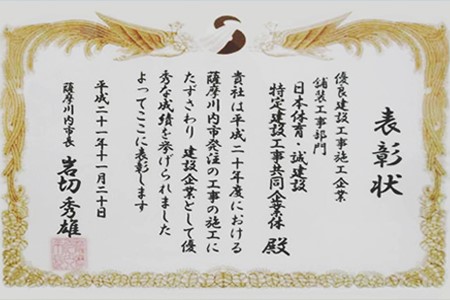 表彰状
優良建設工事施工企業
舗装工事部門
日本体育・誠建設
特定建設工事共同企業体 殿
貴社は平成二十年度における
薩摩川内市発注の工事の施工に
たずさわり 建設企業として優
秀な成績を挙げられました
よってここに表彰します
平成二十一年十一月二十日
薩摩川内市長 岩切秀雄